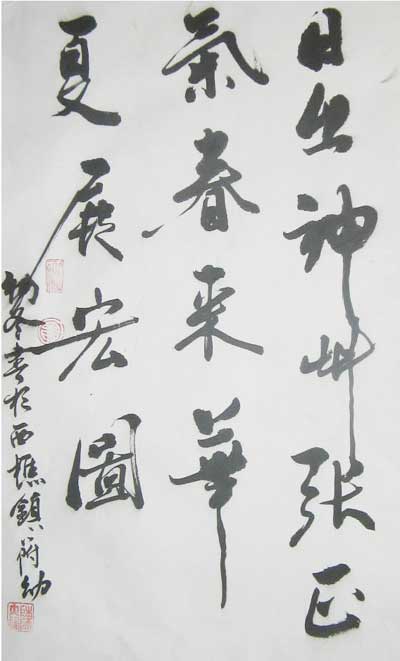 日出神州张正
氣春来華
夏展宏圖
初冬書於西樵鎮